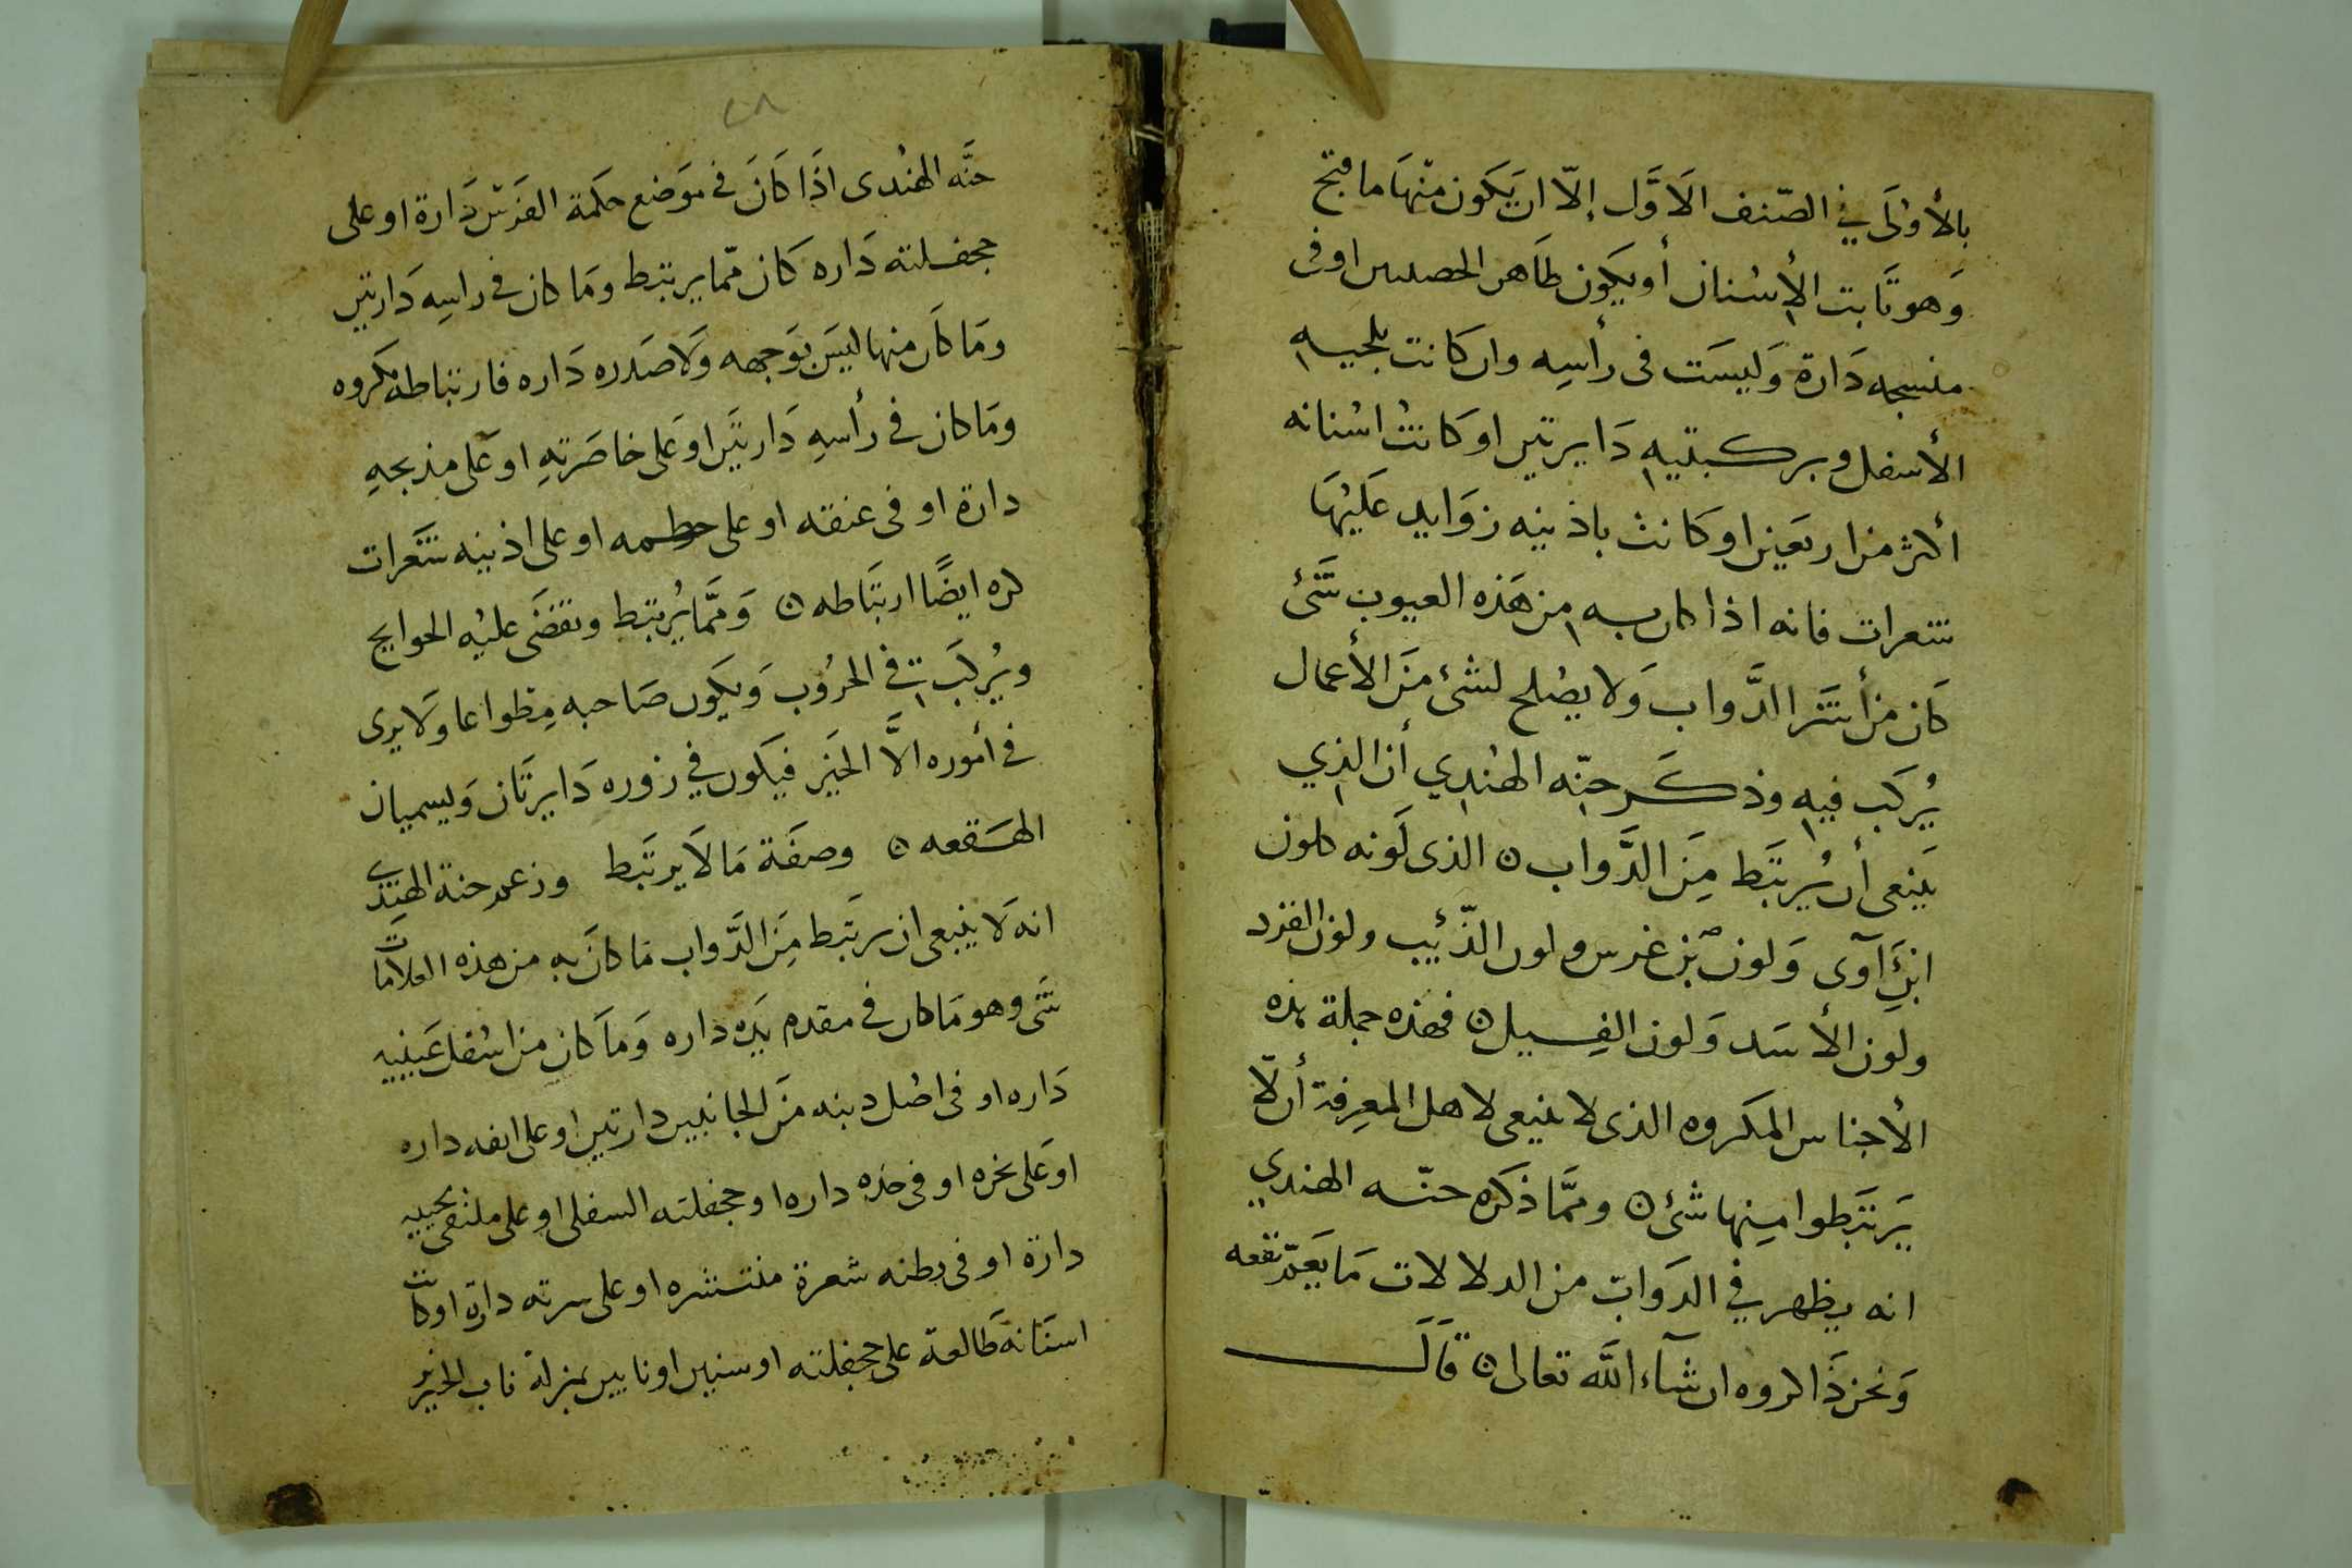 بالأولَى في الصّنف الأوَّل إلّا ان يَكون منهَا ما فتح
وَهو ثَابت الأسْنان أو يكون ظَاهر او فى
منسجه دَارة وَليسَت فى رأسِه وان كانت بلحييه
الأسفل وبركبتيه دَايرتين او كانتْ اسْنانه
أكثر من اربعَين او كانت باذنيه زوَايد عَليْهَا
شعرات فانه اذا كان به من هَذه العيوب شَئ
كَان من أشَر الدَّواب وَلا يصْلح لشئ منَ الأعمال
يُركَب فيه وذكَر حنّه الهنْدِي أن الذِي
يَنبغى أن يُرتبَط مِنَ الدَّواب ٥ الذى لَونه كلون
ابنِ آوى وَلون بن عرس ولون الذّئيب ولون القرد
ولون الأسَد وَلون الفِيل ٥ فهذه جملة هذه
الأجناس المكروه الذى لا ينبغى لاهل المعرِفة أن لّا
يَرتبَطوا مِنها شئ ٥ وممَّا ذكره حنّه الهندي
انه يظهر في الدوَابّ من الدلالات مَا يَعمّ نفعه
وَنحن ذَاكروه ان شآء اللَّه تعالى ٥ قَالَ
٢٨
حنَّه الهنْدى اذَا كَانَ في موَضع حكَمة الفرَس دَارة او على
جحفلته دَاره كَان ممّا يرتبط ومَا كان في راسِه دَارتين
ومَا كَان منها ليسَ بوَجهه وَلا صَدره دَاره فارتباطه مكروه
ومَا كان في رأسهِ دَارتَين او عَلى خاصَرتهِ او عَلى مذبحِهِ
دارة او فى عنقه او على خطمه او على اذنيه شعَرات
كره ايضًا ارتبَاطه ٥ وَممَّا يُرتبَط وتقضَى عليْه الحوايج
ويُركَب في الحرُوب وَيكون صَاحبه مِطواعا وَلا يرى
في أموره الَّا الخيَر فيَكون في زوره دَايرتَان وَيسميان
الهَقعه ٥ وصفَة مَا لاَ يرتَبط وزعم حنة الهندِى
انه لَا ينبغى ان يرتَبط مِنَ الدَّواب مَا كانَ به من هذه العلامات
شَى وهو مَا كان في مقدم يَده داره وَمَا كان من اسْفل عَينيه
دَاره او فى اصْل ذنبه منَ الجانبين دارتين او على انفه داره
او عَلى نخره او فى خده داره او جحفلته السفلى او على ملتقى لحييه
دارة او فى بطنه شعرة منتشره او على سرته دارة او كانت
اسنَانه طَالعة على جحفلته او سنين او نابين بمنزلة ناب الخنزير